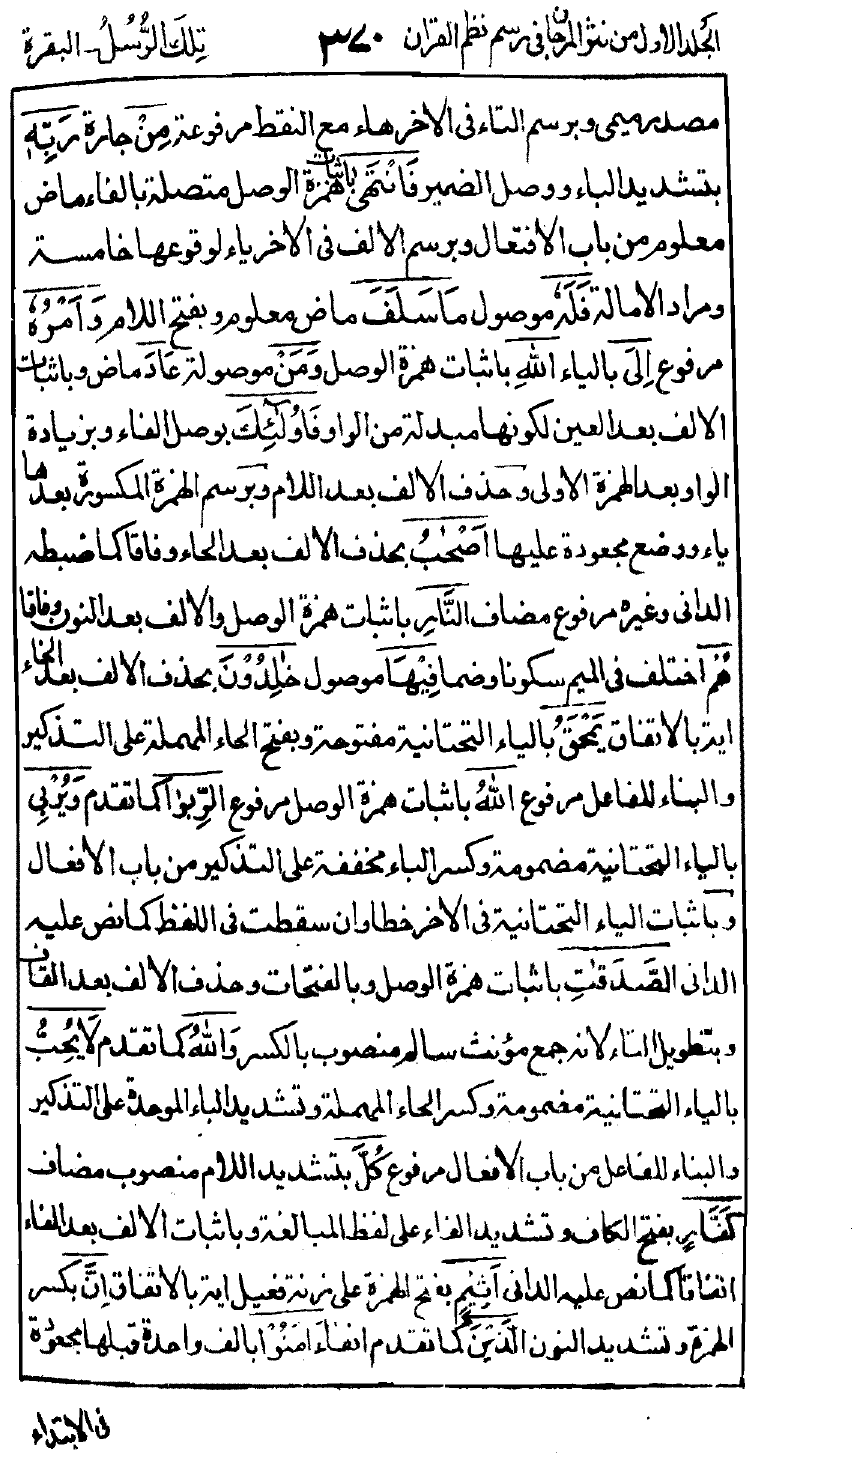 الجلد الاول من نثر المرجان في رسم نظم القران ٣٧٠ تِلكَ الرُّسُلُ - البقرة
مصدر ميمى وبرسم التاء فى الاخر هاء مع النقط مرفوعة مِنْ جارة رَبِّهٖ
بتشديد الباء ووصل الضمير فَانْتَهٰى باثبات همزة الوصل متصلة بالفاء ماض
معلوم من باب الافتعال وبرسم الالف فى الاخر ياء لوقوعها خامسة
ومراد الامالة فَلَهٗ موصول مَا سَلَفَ ماض معلوم وبفتح اللام وَاَمْرُهٗ
مرفوع اِلَى بالياء اللهِ باثبات همزة الوصل وَمَنْ موصولة عَادَ ماض وباثبات
الالف بعد العين لكونها مبدلة من الواو فَاُولٰٓئِكَ بوصل الفاء وبزيادة
الواو بعد الهمزة الاولى وحذف الالف بعد اللام وبرسم الهمزة المكسورة بعدها
ياء ووضع مجعودة عليها اَصْحٰبُ بحذف الالف بعد الحاء وفاقا كما ضبطه
الدانى وغيره مرفوع مضاف النَّارِ باثبات همزة الوصل والالف بعد النون وفاقا
هُمْ اختلف فى الميم سكونا وضما فِيْهَا موصول خٰلِدُوْنَ بحذف الالف بعد الخاء
اية بالاتفاق يَمْحَقُ بالياء التحتانية مفتوحة وبفتح الحاء المهملة على التذكير
والبناء للفاعل مرفوع اللهُ باثبات همزة الوصل مرفوع الرِّبٰوا كما تقدم وَيُرْبِي
بالياء التحتانية مضمومة وكسر الباء مخففة على التذكير من باب الافعال
وباثبات الياء التحتانية فى الاخر خطا وان سقطت فى اللفظ كما نص عليه
الدانى الصَّدَقٰتِ باثبات همزة الوصل وبالفتحات وحذف الالف بعد القاف
وبتطويل التاء لانه جمع مؤنث سالم منصوب بالكسر وَاللهُ كما تقدم لَا يُحِبُّ
بالياء التحتانية مضمومة وكسر الحاء المهملة وتشديد الباء الموحدة على التذكير
والبناء للفاعل من باب الافعال مرفوع كُلَّ بتشديد اللام منصوب مضاف
كَفَّارٍ بفتح الكاف وتشديد الفاء على لفظ المبالغة وباثبات الالف بعد الفاء
اتفاقا كما نص عليه الدانى اَثِيْمٍ بفتح الهمزة على زنة فعيل اية بالاتفاق اِنَّ بكسر
الهمزة وتشديد النون الَّذِيْنَ كما تقدم انفا اٰمَنُوْا بالف واحدة قبلها مجعودة
فى الابتداء